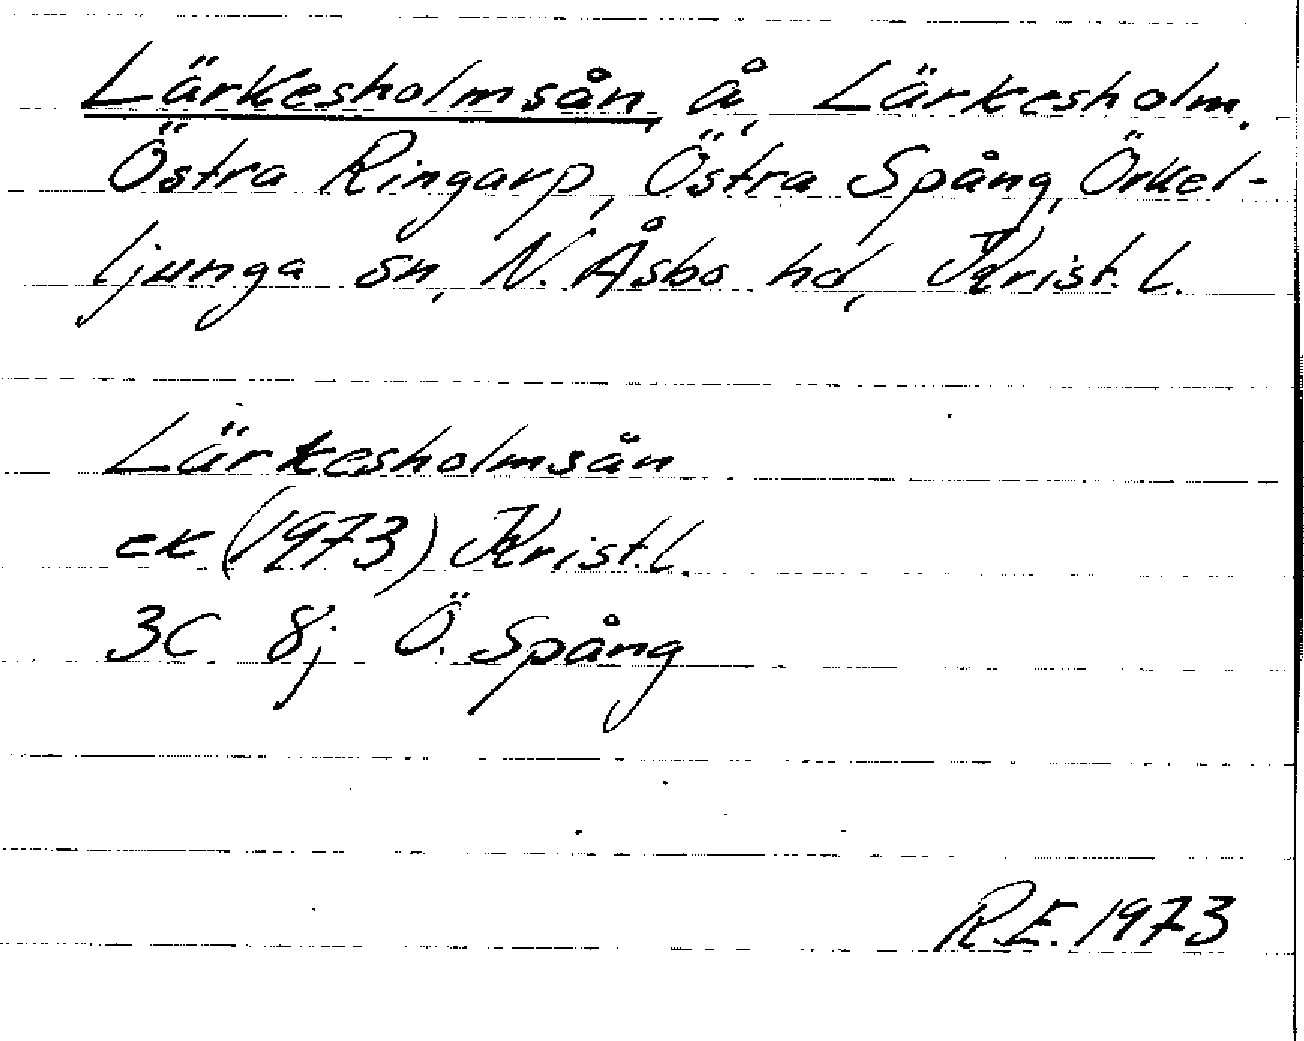 Lärkesholmsån, å, Lärkesholm.
Östra Ringarp, Östra Spång, Örkel-
ljunga sn, N. Åsbo hd, Krist. l.
Lärkesholmsån
ek (1973) Krist. l.
3C 8j Ö. Spång
R.E. 1973